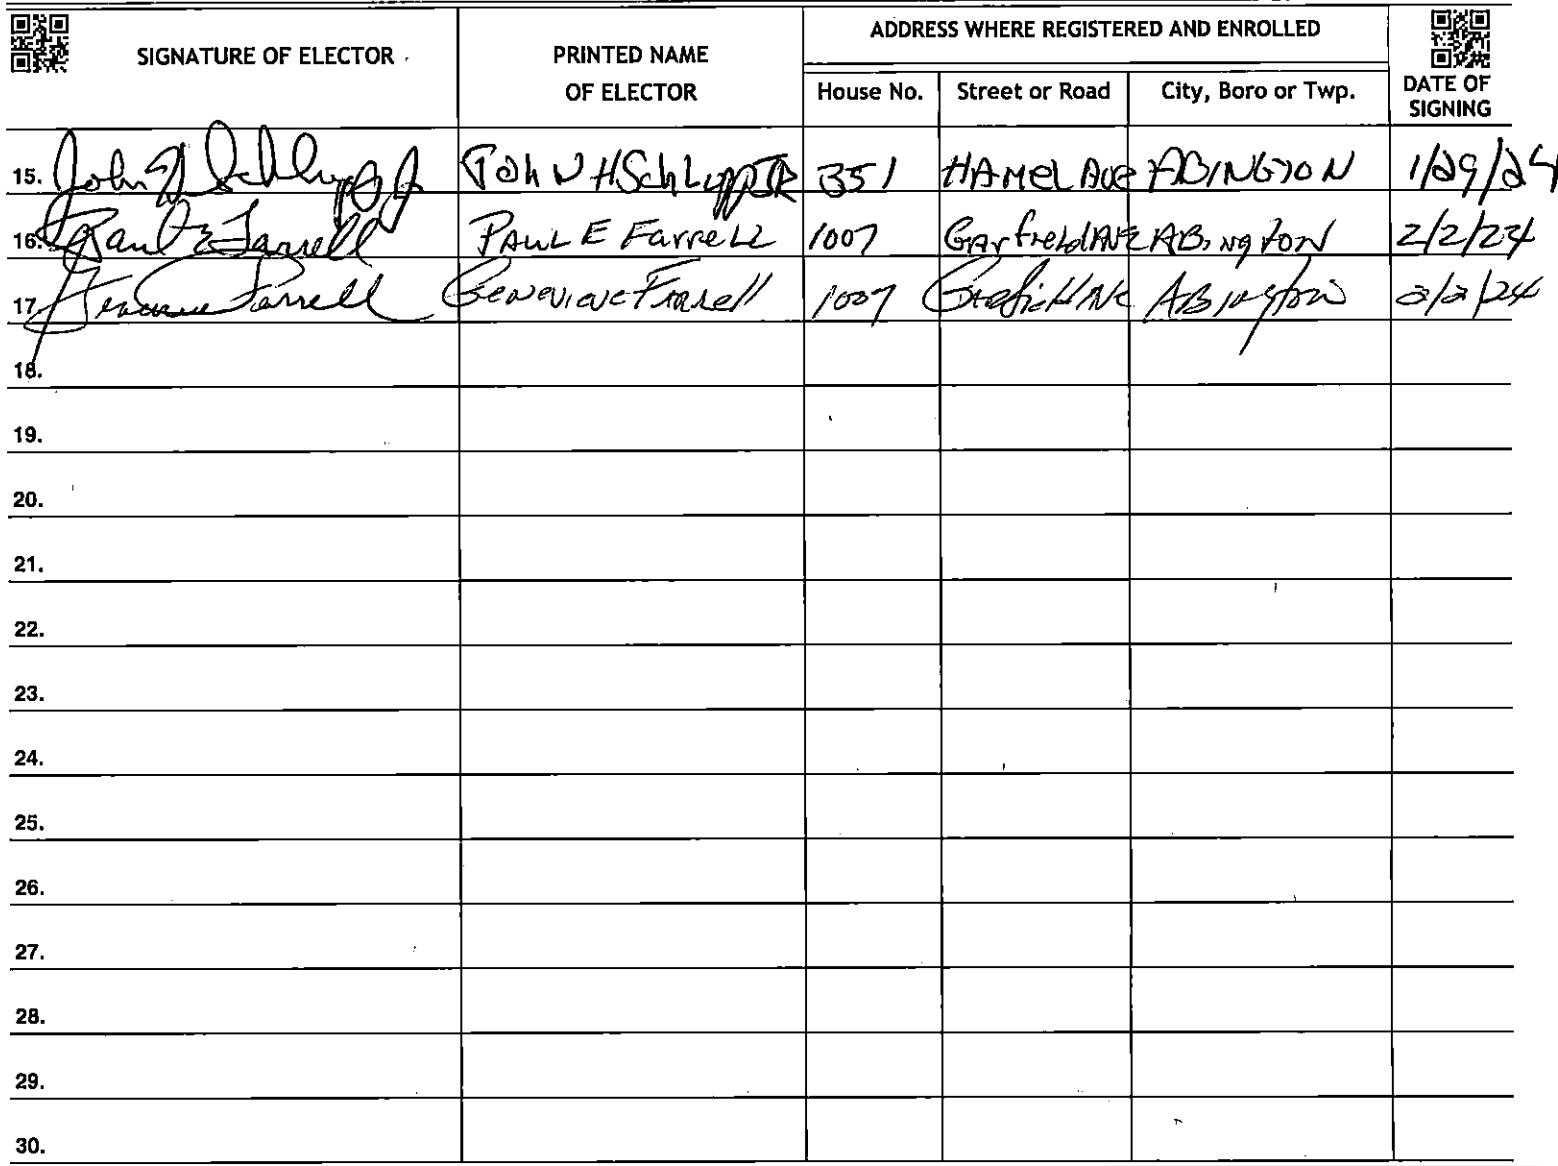 SIGNATURE OF ELECTOR
PRINTED NAME
OF ELECTOR
ADDRESS WHERE REGISTERED AND ENROLLED
House No. Street or Road City, Boro or Twp.
DATE OF
SIGNING
15. John H Schlupp Jr JohN H SchLupp JR 351 HAMeL Ave ABINGTON 1/29/24
16. Paul E Farrell PAUL E FarreLL 1007 GArfieLd AVE ABingTON 2/2/24
17. Genevieve Farrell Genevieve Farrell 1007 Garfield Ave ABington 2/2/24
18.
19.
20.
21.
22.
23.
24.
25.
26.
27.
28.
29.
30.